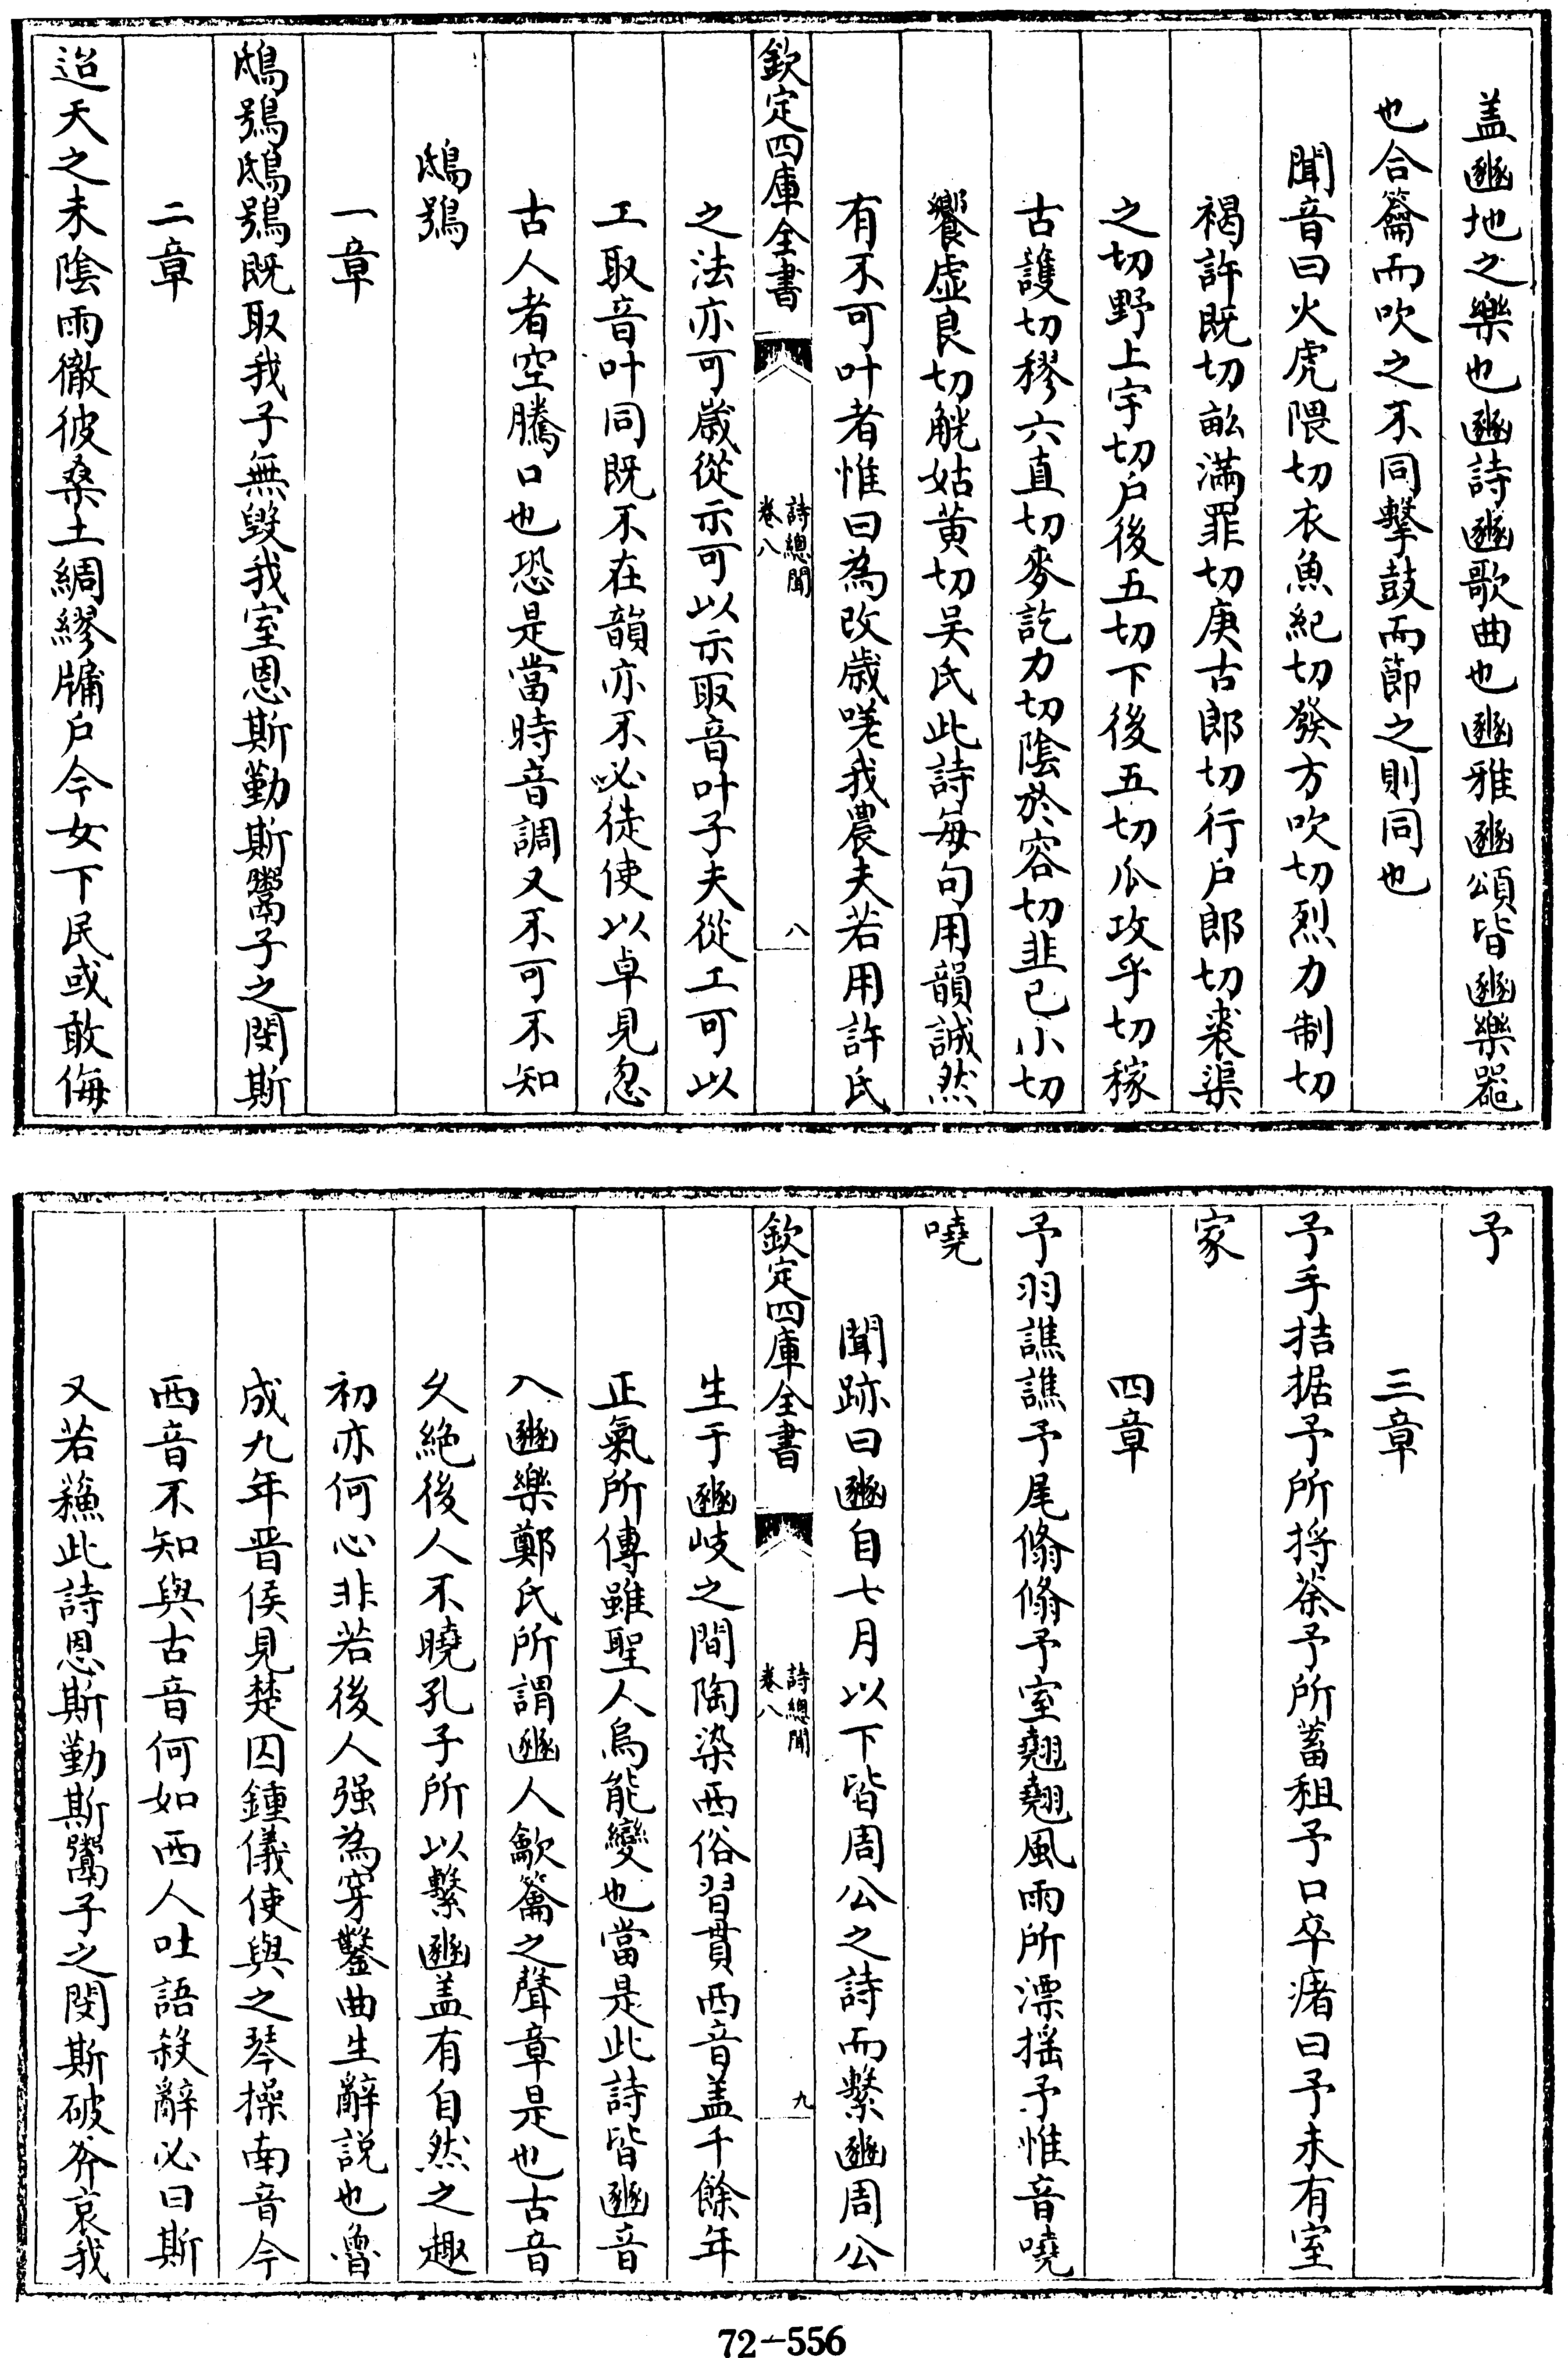 盖豳地之樂也豳詩豳歌曲也豳雅豳頌皆豳樂器
也合籥而吹之不同擊鼓而節之則同也
聞音曰火虎隈切衣魚紀切發方吹切烈力制切
褐許既切畝滿罪切庚古郎切行戶郎切裘渠
之切野上宇切戶後五切下後五切瓜攻乎切稼
古護切穋六直切麥訖力切陰於容切韭已小切
饗虛良切觥姑黃切吳氏此詩每句用韻誠然
有不可叶者惟曰為改歲嗟我農夫若用許氏
欽定四庫全書
詩總聞
卷八
八
之法亦可歲從示可以示取音叶子夫從工可以
工取音叶同既不在韻亦不必徒使以卓見忽
古人者空騰口也恐是當時音調又不可不知
鴟鴞
一章
鴟鴞鴟鴞既取我子無毀我室恩斯勤斯鬻子之閔斯
二章
迨天之未陰雨徹彼桑土綢繆牖戶今女下民或敢侮
予
三章
予手拮据予所捋荼予所蓄租予口卒瘏曰予未有室
家
四章
予羽譙譙予尾翛翛予室翹翹風雨所漂搖予惟音嘵
嘵
聞跡曰豳自七月以下皆周公之詩而繫豳周公
欽定四庫全書
詩總聞
卷八
九
生于豳岐之間陶染西俗習貫西音盖千餘年
正氣所傳雖聖人烏能變也當是此詩皆豳音
入豳樂鄭氏所謂豳人龡籥之聲章是也古音
乆絶後人不曉孔子所以繫豳盖有自然之趣
初亦何心非若後人强為穿鑿曲生辭説也魯
成九年晉侯見楚囚鍾儀使與之琴操南音今
西音不知與古音何如西人吐語殺辭必曰斯
又若蘓此詩恩斯勤斯鬻子之閔斯破斧哀我
72-556